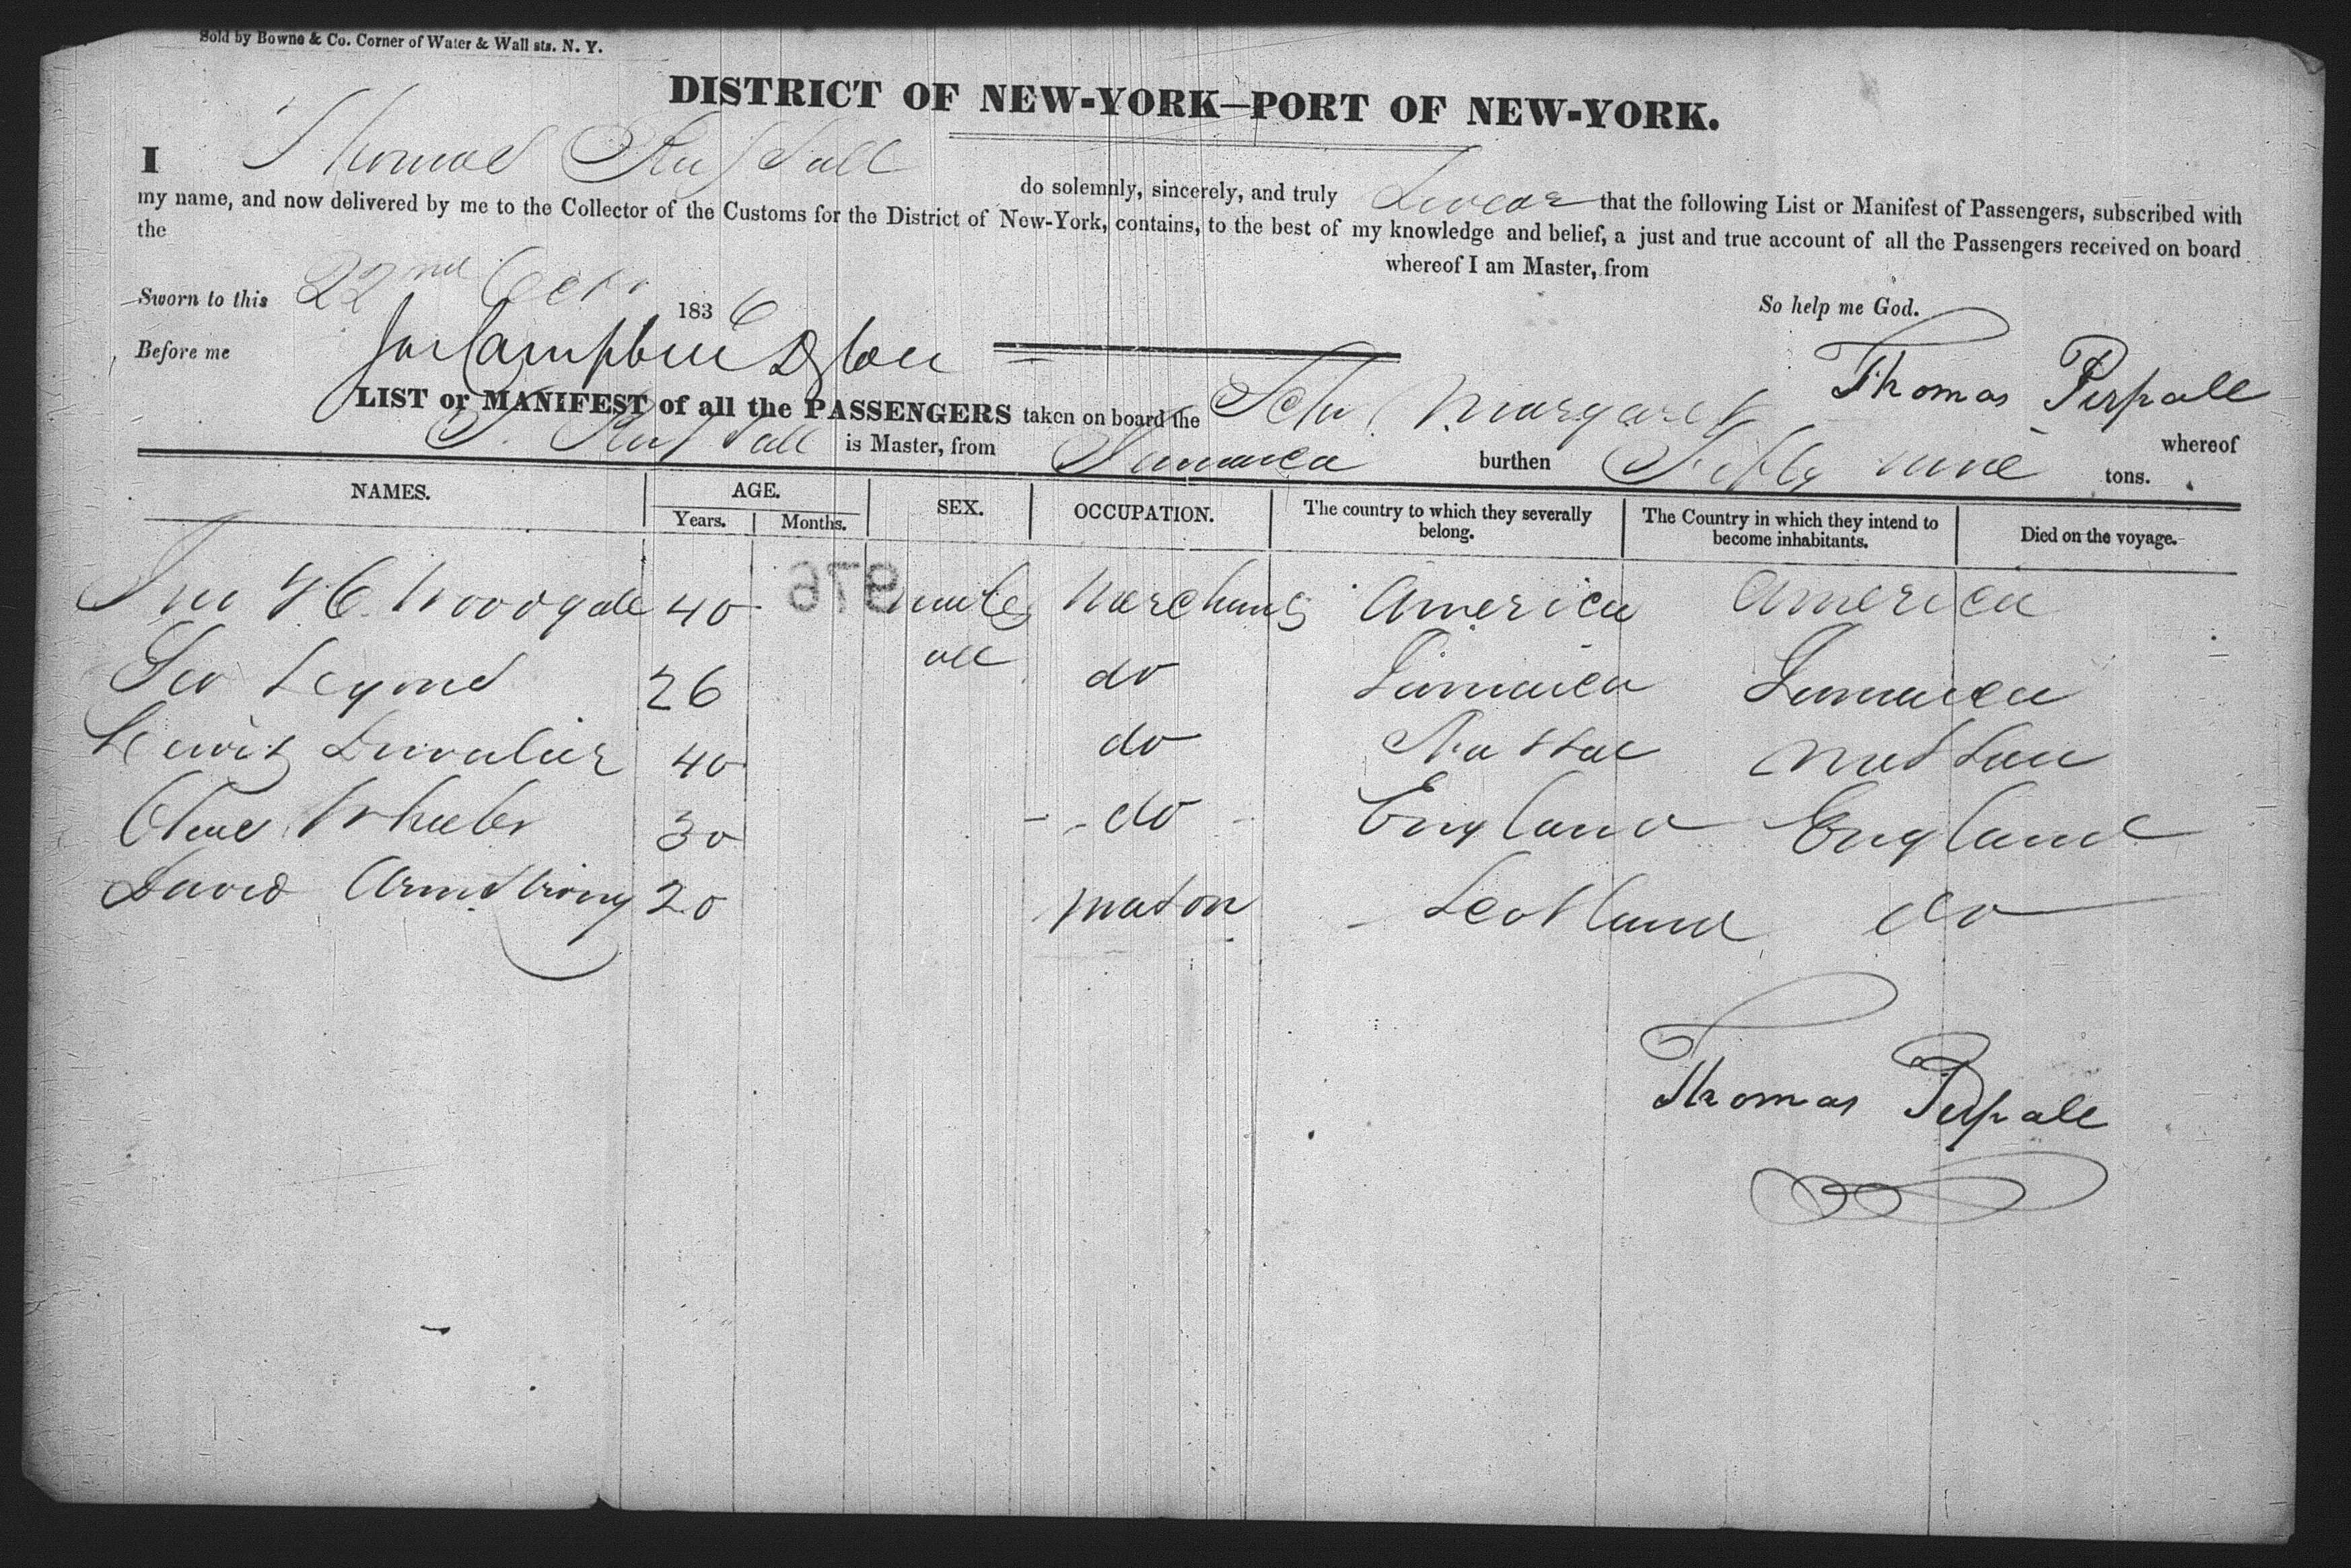 Sold by Bowne & Co. Corner of Water & Wall sts. N. Y.
DISTRICT OF NEW-YORK—PORT OF NEW-YORK.
I Thomas do solemnly, sincerely, and truly Swear that the following List or Manifest of Passengers, subscribed with
my name, and now delivered by me to the Collector of the Customs for the District of New-York, contains, to the best of my knowledge and belief, a just and true account of all the Passengers received on board
the whereof I am Master, from
Sworn to this 22nd 1836 So help me God.
Before me Campbell Thomas Pirpall
LIST or MANIFEST of all the PASSENGERS taken on board the Schr Margaret whereof
is Master, from Jamaica burthen Fifty nine tons.
NAMES. AGE. SEX. OCCUPATION. The country to which they severally belong. The Country in which they intend to become inhabitants. Died on the voyage.
Years. Months.
976
Woodgate 40 males Merchants America America
Geo Legond 26 all do Jamaica Jamaica
Lewis Duvalier 40 do Nassau Nassau
Wheeler 30 do England England
David Armstrong 20 mason Scotland do
Thomas Pirpall